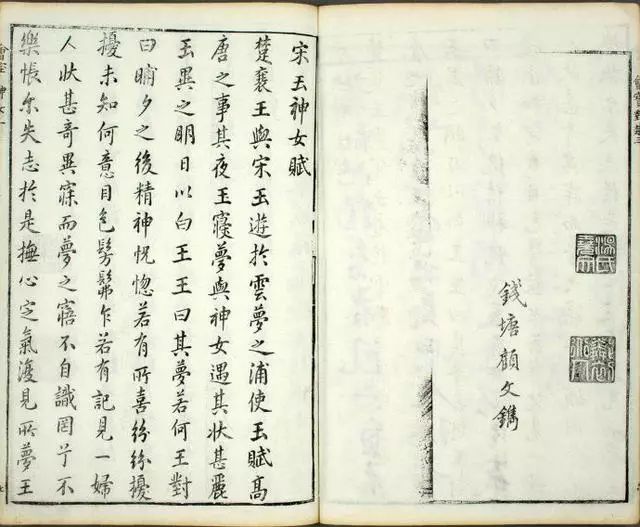 錢塘顧文鐫
宋玉神女賦
楚襄王與宋玉遊於雲夢之浦使玉賦高
唐之事其夜王寢夢與神女遇其狀甚麗
玉異之明日以白王王曰其夢若何王對
曰晡夕之後精神怳惚若有所喜紛紛擾
擾未知何意目色髣髴乍若有記見一婦
人狀甚奇異寐而夢之寤不自識罔兮不
樂悵尔失志於是撫心定氣復見所夢王